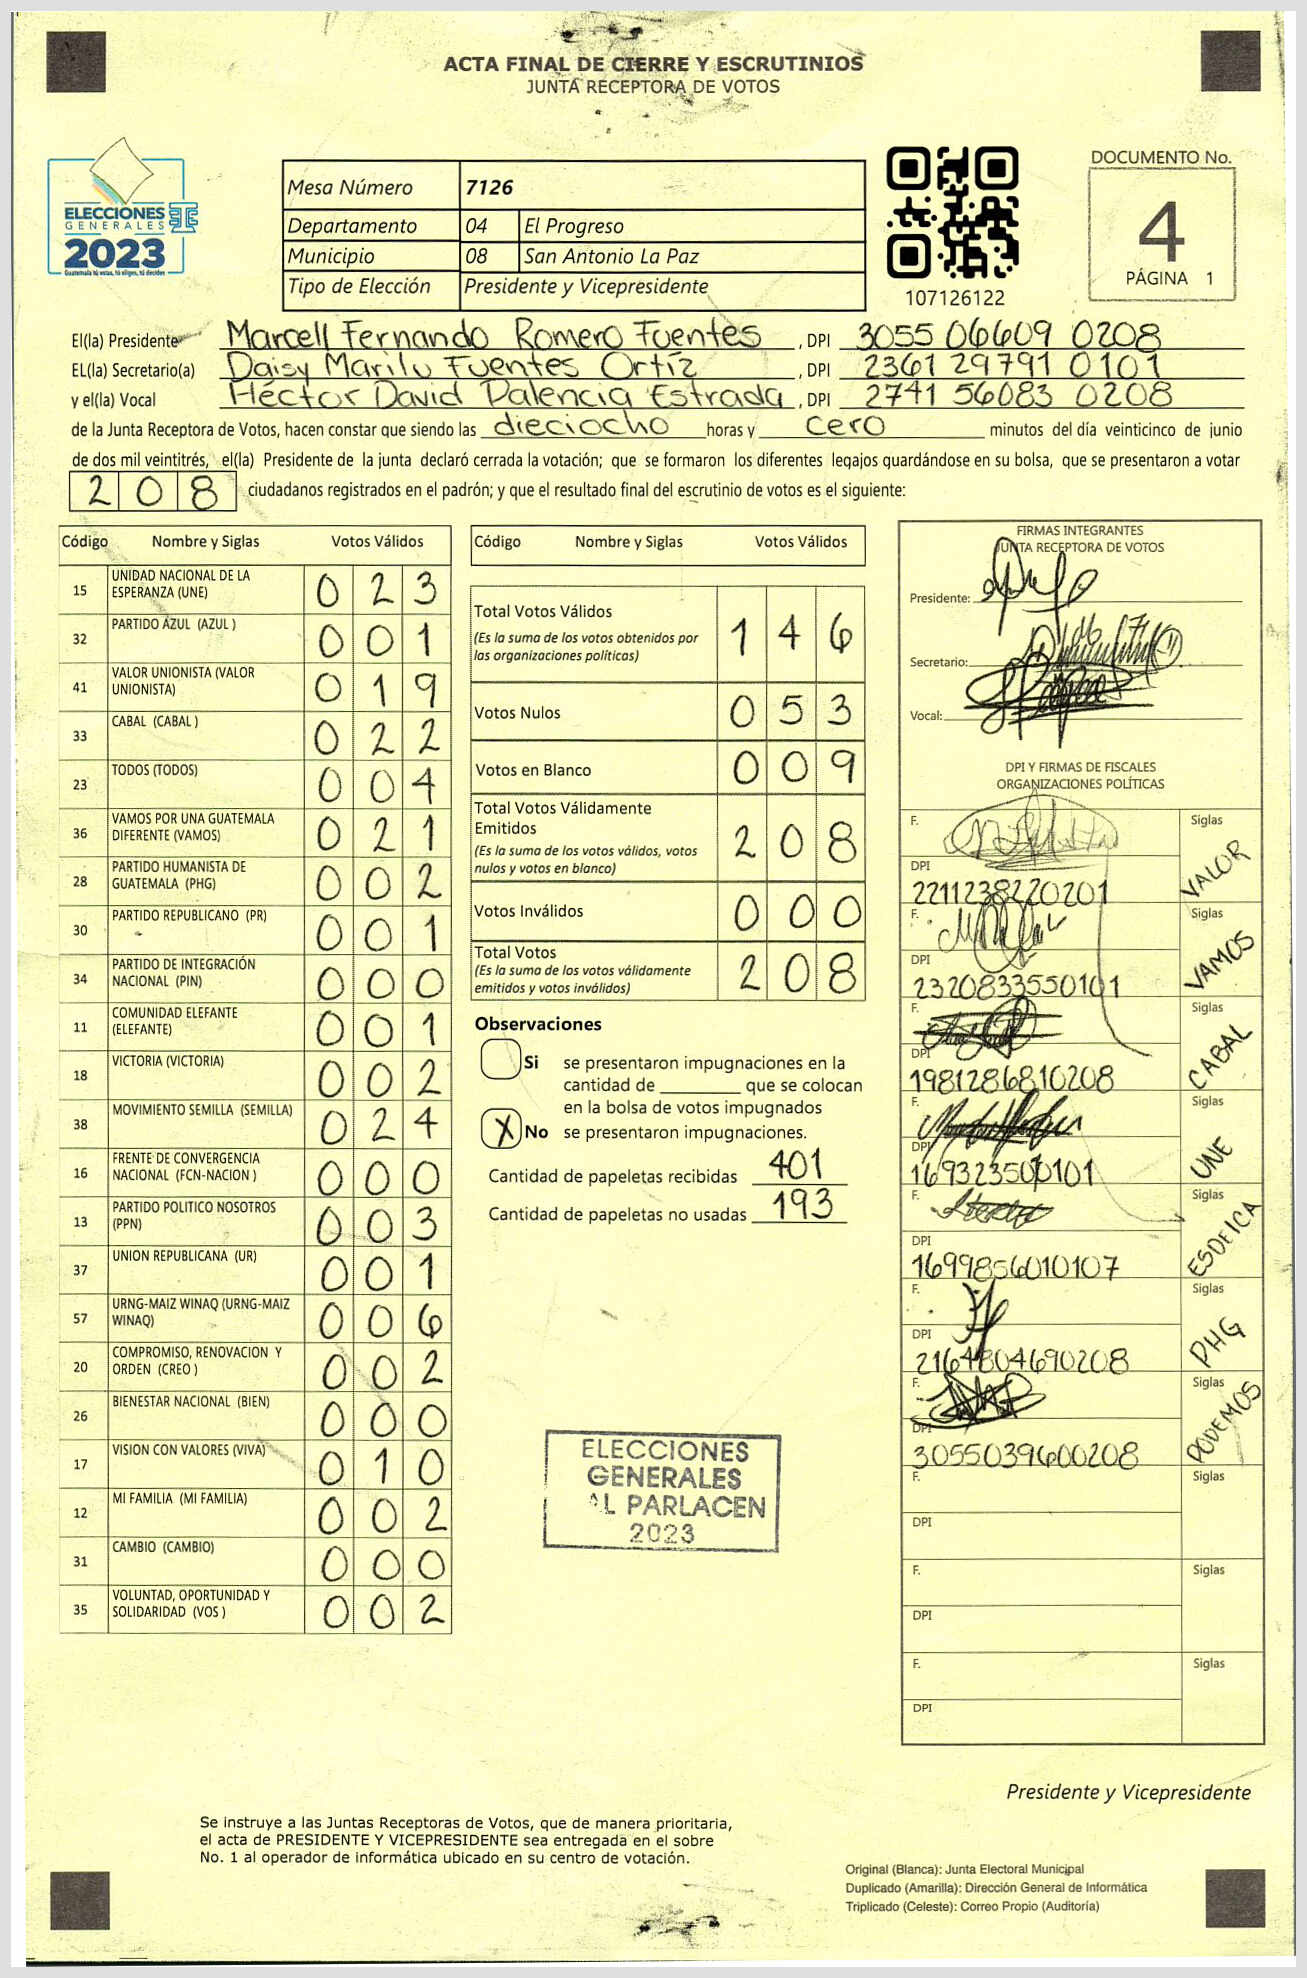 ACTA FINAL DE CIERRE Y ESCRUTINIOS
JUNTA RECEPTORA DE VOTOS
ELECCIONES
GENERALES
2023
Guatemala tú votas, tú eliges, tú decides
Mesa Número 7126
Departamento 04 El Progreso
Municipio 08 San Antonio La Paz
Tipo de Elección Presidente y Vicepresidente
107126122
DOCUMENTO No.
4
PÁGINA 1
El(la) Presidente Marcell Fernando Romero Fuentes, DPI 3055 06609 0208
EL(la) Secretario(a) Daisy Marilu Fuentes Ortíz, DPI 2361 29791 0101
y el(la) Vocal Héctor David Palencia Estrada, DPI 2741 56083 0208
de la Junta Receptora de Votos, hacen constar que siendo las dieciocho horas y cero minutos del día veinticinco de junio
de dos mil veintitrés, el(la) Presidente de la junta declaró cerrada la votación; que se formaron los diferentes legajos guardándose en su bolsa, que se presentaron a votar
208 ciudadanos registrados en el padrón; y que el resultado final del escrutinio de votos es el siguiente:
Código Nombre y Siglas Votos Válidos
15 UNIDAD NACIONAL DE LA ESPERANZA (UNE) 023
32 PARTIDO AZUL (AZUL ) 001
41 VALOR UNIONISTA (VALOR UNIONISTA) 019
33 CABAL (CABAL ) 022
23 TODOS (TODOS) 004
36 VAMOS POR UNA GUATEMALA DIFERENTE (VAMOS) 021
28 PARTIDO HUMANISTA DE GUATEMALA (PHG) 002
30 PARTIDO REPUBLICANO (PR) 001
34 PARTIDO DE INTEGRACIÓN NACIONAL (PIN) 000
11 COMUNIDAD ELEFANTE (ELEFANTE) 001
18 VICTORIA (VICTORIA) 002
38 MOVIMIENTO SEMILLA (SEMILLA) 024
16 FRENTE DE CONVERGENCIA NACIONAL (FCN-NACION ) 000
13 PARTIDO POLITICO NOSOTROS (PPN) 003
37 UNION REPUBLICANA (UR) 001
57 URNG-MAIZ WINAQ (URNG-MAIZ WINAQ) 006
20 COMPROMISO, RENOVACION Y ORDEN (CREO ) 002
26 BIENESTAR NACIONAL (BIEN) 000
17 VISION CON VALORES (VIVA) 010
12 MI FAMILIA (MI FAMILIA) 002
31 CAMBIO (CAMBIO) 000
35 VOLUNTAD, OPORTUNIDAD Y SOLIDARIDAD (VOS ) 002
Código Nombre y Siglas Votos Válidos
Total Votos Válidos 146
(Es la suma de los votos obtenidos por
las organizaciones políticas)
Votos Nulos 053
Votos en Blanco 009
Total Votos Válidamente
Emitidos 208
(Es la suma de los votos válidos, votos
nulos y votos en blanco)
Votos Inválidos 000
Total Votos 208
(Es la suma de los votos válidamente
emitidos y votos inválidos)
Observaciones
Si se presentaron impugnaciones en la
cantidad de ________ que se colocan
en la bolsa de votos impugnados
X No se presentaron impugnaciones.
Cantidad de papeletas recibidas 401
Cantidad de papeletas no usadas 193
ELECCIONES
GENERALES
AL PARLACEN
2023
FIRMAS INTEGRANTES
JUNTA RECEPTORA DE VOTOS
Presidente:
Secretario:
Vocal:
DPI Y FIRMAS DE FISCALES
ORGANIZACIONES POLÍTICAS
F. Siglas VALOR
DPI 2211238220201
F. Siglas VAMOS
DPI 2320833550101
F. Siglas CABAL
DPI 1981286810208
F. Siglas UNE
DPI 169323500101
F. Siglas
DPI 1699856010107
F. Siglas PHG
DPI 2164804690208
F. Siglas PODEMOS
DPI 3055039600208
F. Siglas
DPI
F. Siglas
DPI
F. Siglas
DPI
Presidente y Vicepresidente
Se instruye a las Juntas Receptoras de Votos, que de manera prioritaria,
el acta de PRESIDENTE Y VICEPRESIDENTE sea entregada en el sobre
No. 1 al operador de informática ubicado en su centro de votación.
Original (Blanca): Junta Electoral Municipal
Duplicado (Amarilla): Dirección General de Informática
Triplicado (Celeste): Correo Propio (Auditoría)